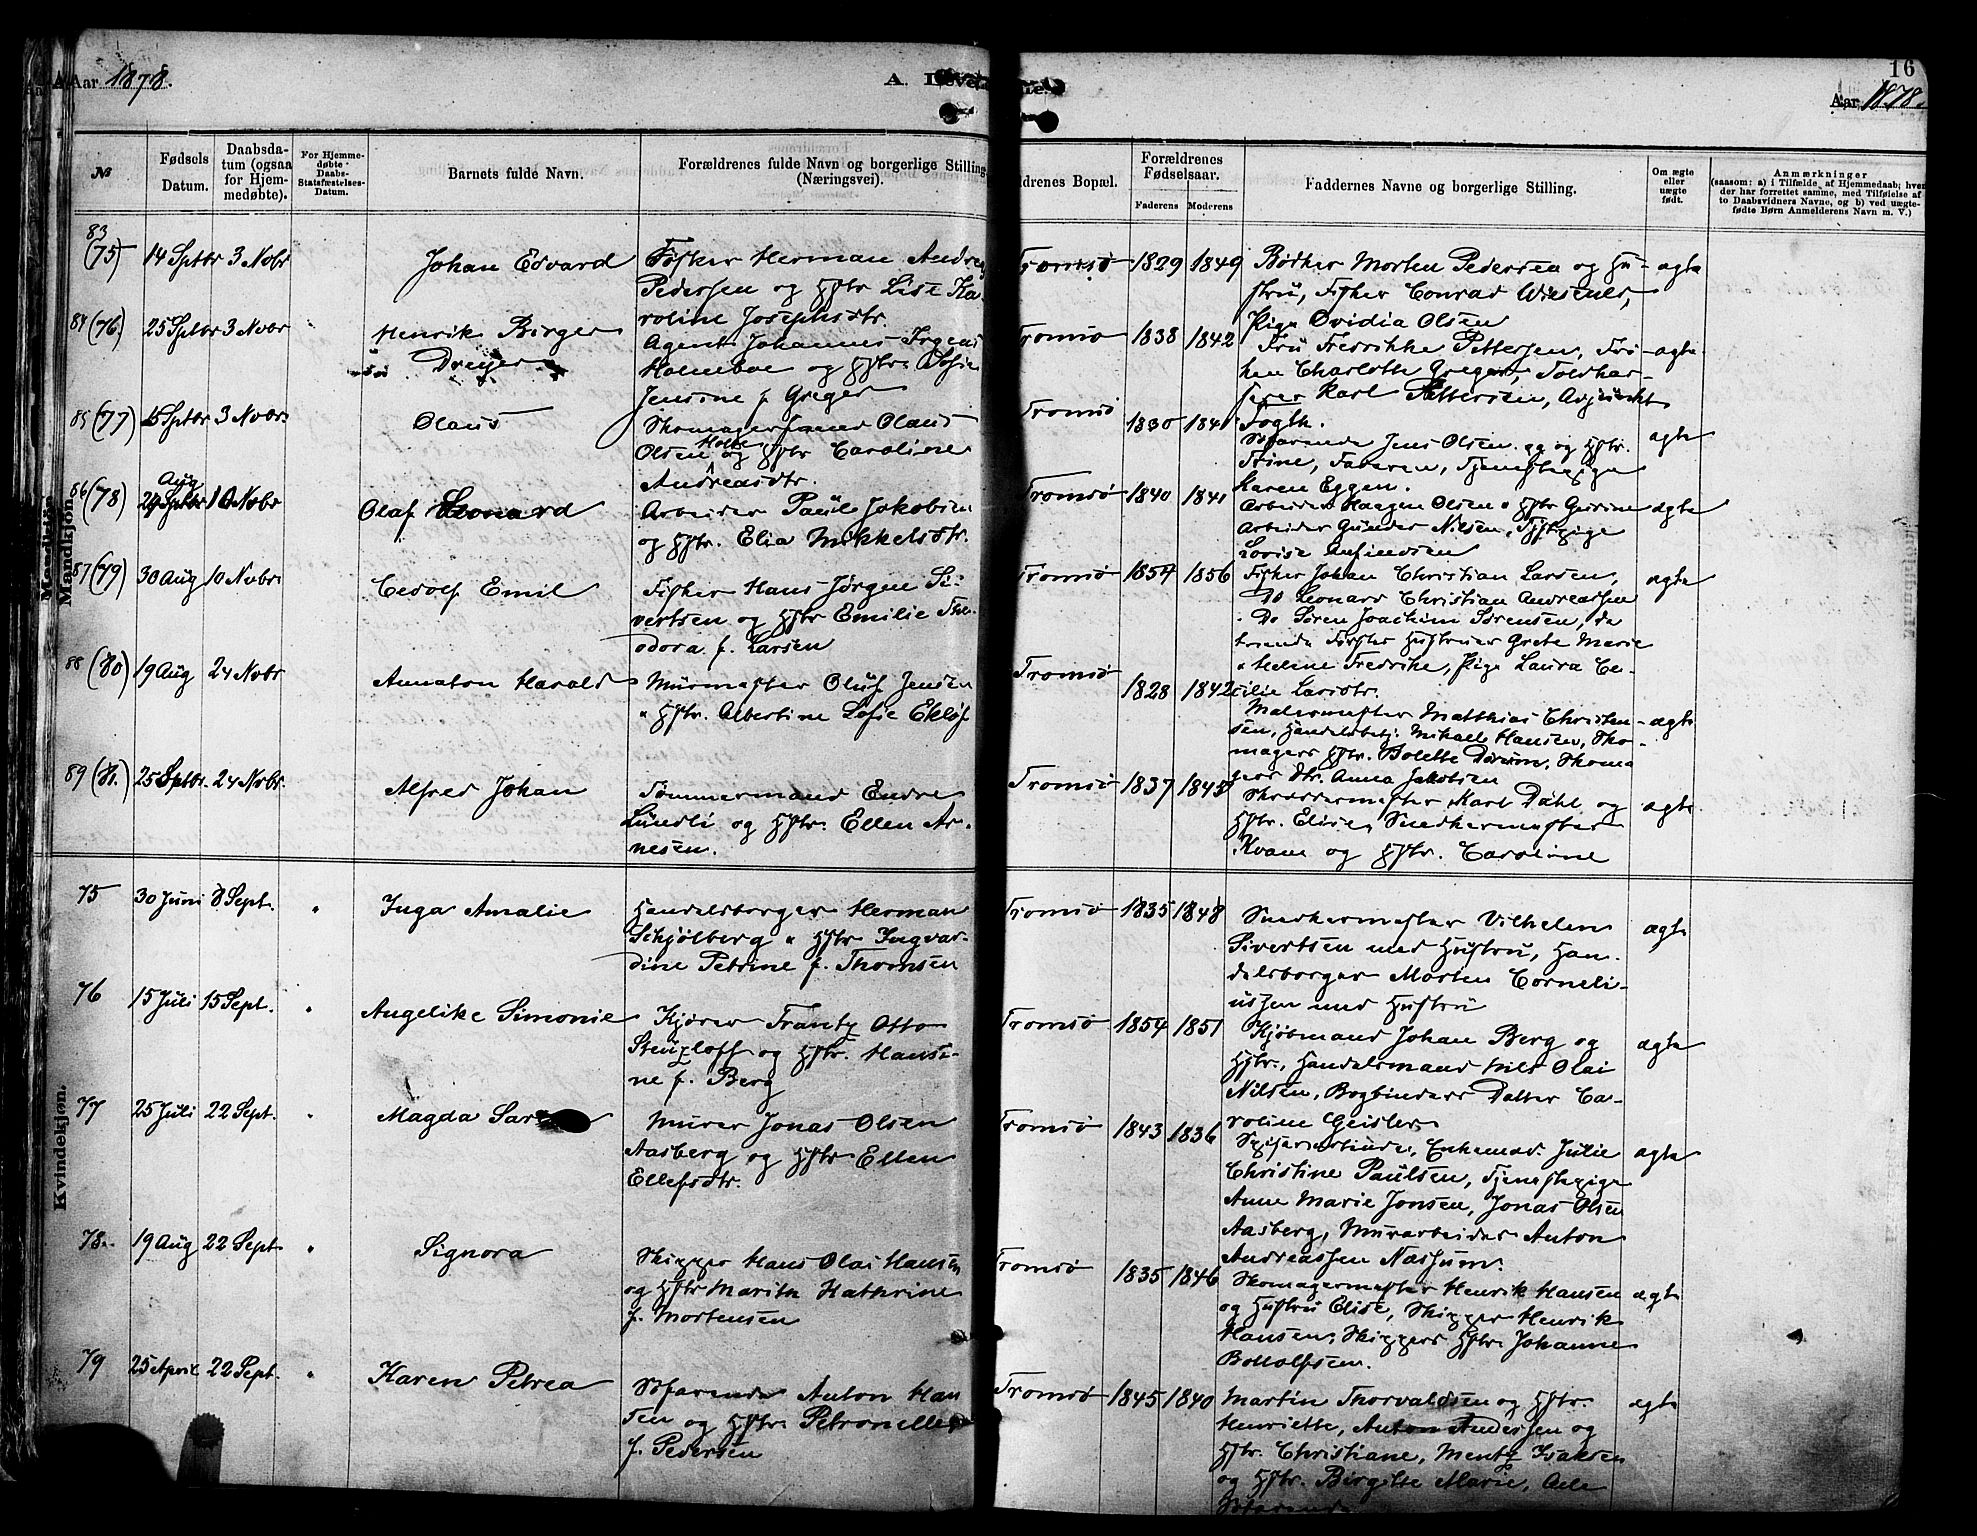 Aar 1878.
A. Levende
16
Aar 1878.
№
Fødsels Datum.
Daabsdatum (ogsaa for Hjemmedøbte).
For Hjemmedøbte Daabs-Statsfæstelses-Datum.
Barnets fulde Navn.
Forældrenes fulde Navn og borgerlige Stilling (Næringsvei).
drenes Bopæl.
Forældrenes Fødselsaar.
Faderens
Moderens
Faddernes Navne og borgerlige Stilling.
Om ægte eller uægte født.
Anmærkninger
(saasom: a) i Tilfælde af Hjemmedaab; hver
der har forrettet samme, med Tilføielse af
to Daabsvidners Navne, og b) ved uægte-
fødte Børn Anmelderens Navn m. V.)
Mandkjøn.
83 (75) 14 Septbr 3 Nobr Johan Edvard
Fisker Herman Andrea
Pedersen og Hstr Lise Ka-
roline Josephsdtr.
Tromsø 1829 1849
Bødker Morten Pedersen og Hu-
stru, Fisker Conrad Wisener,
Pige Ovidia Olsen
ægte
84 (76) 25 Septbr 3 Novbr Henrik Birger
Dreyer
Agent Johannes Irgens
Holmboe og Hstr Sofie
Jensine f Greger
Tromsø 1838 1842
Fru Fredrikke Pettersen, Frø-
ken Charlotte Greger, Toldkas-
serer Karl Pettersen, Avjunkt
Fogth.
ægte
85 (77) 15 Septbr 3 Novbr Olaus
Skomagersvend Olaus
Olsen Holte og Hstr Caroline
Andreasdtr.
Tromsø 1830 1841
Søfarende Jens Olsen og Hstr.
Trine, Tjenestepige
Karen Eggen.
ægte
86 (78) 24 Aug 10 Nobr Olaf Leonard
Arbeider Paul Jakobsen
og Hstr. Elia Mikkelsdtr.
Tromsø 1840 1841
Arbeider Haagen Olsen & Hstr Gurine
Arbeider Gunder Nilsen, Tjstpige
Lovise Anfindsen
ægte
87 (79) 30 Aug 10 Nvbr Cedolf Emil
Fisker Hans Jørgen Si-
vertsen og Hstr Emilie The-
odora f. Larsen
Tromsø 1854 1856
Fisker Johan Christian Larsen,
Do Leonard Christian Andreassen
Do Søren Joachim Sørensen, de
Hustruer Grete Marie
& Helene Fredrike, Pige Laura Ce-
cilie Larsdtr.
ægte
88 (80) 19 Aug 24 Nvbr Amaton Harald
Murmester Oluf Jensen
& Hstr. Albertine Sofie Ekløf
Tromsø 1828 1842
Malermester Matthias Christen-
sen, Handelsbetj: Mikael Hansen, Sko-
magers Hstr. Bolette Dørum, Skoma
gers dtr. Anna Jakobsen
ægte
89 (81. 25 Septbr. 24 Nvbr. Alfred Johan
Tømmermand Endre
Lundli og Hstr. Ellen Ar-
nesen.
Tromsø 1837 1845
Skreddermester Karl Dahl og
Hstr. Elise, Snedkermester
Kvane og Hstr. Caroline
ægte
Kvindekjøn.
75 30 Juni 8 Sept. " Inga Amalie
Handelsborger Herman
Schjølberg & Hstr Ingvar-
dine Petrine f. Thomsen
Tromsø 1835 1848
Snedkermester Vilhelm
Sivertsen med Hustru, Han-
delsborger Morten Corneli-
ussen med Hustru
ægte
76 15 Juli 15 Sept. " Angelike Simonie
Kjører Frantz Otto
Stenzloff og Hstr. Hansi-
ne f. Berg
Tromsø 1854 1851
Kjøbmand Johan Berg og
Hstr., Handelsmand Nils Olai
Nilsen, Bogbinders Datter Ca-
roline Geisler.
ægte
77 25 Juli 22 Sept. " Magda
Murer Jonas Olsen
Aasberg og Hstr Ellen
Ellefsdtr.
Tromsø 1843 1836
Enkemad. Julie
Christine Paulsen, Tjenestepige
Anne Marie Jonsen, Jonas Olsen
Aasberg, Murarbeider Anton
Andreassen Næssum.
ægte
78. 19 Aug 22 Sept " Signora
Skipper Hans Olai Hansen
og Hstr Marith Kathrine
f. Mortensen
Tromsø 1835 1846
Skomagermester Henrik Hansen
og Hustru Elise, Skipper Henrik
Hansen, Skippers Hstr. Johanne
Bottolfsen.
ægte
79 25 April 22 Sept. " Karen Petrea
Søfarende Anton Han
sen og Hstr Petronelle
f. Pedersen
Tromsø 1845 1840
Martin Thorvaldsen og Hstr.
Henriette, Anton Andersen og
Hstr. Christiane, Mentz Isaksen
og Hstr. Birgitte Marie, Alle
Søfarende
ægte